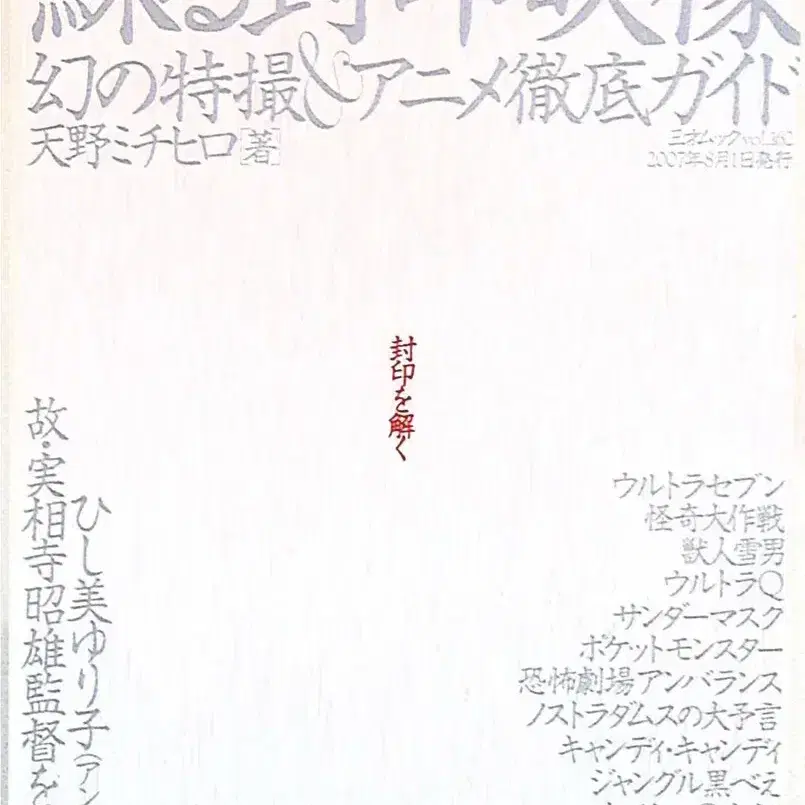 蘇る封印映像
幻の特撮&アニメ徹底ガイド
天野ミチヒロ[著]
三才ムックvol.162
2007年8月1日発行
封印を解く
ウルトラセブン
怪奇大作戦
獣人雪男
ウルトラQ
サンダーマスク
ポケットモンスター
恐怖劇場アンバランス
ノストラダムスの大予言
キャンディ・キャンディ
ジャングル黒べえ
ひし美ゆり子(アン
故・実相寺昭雄監督を